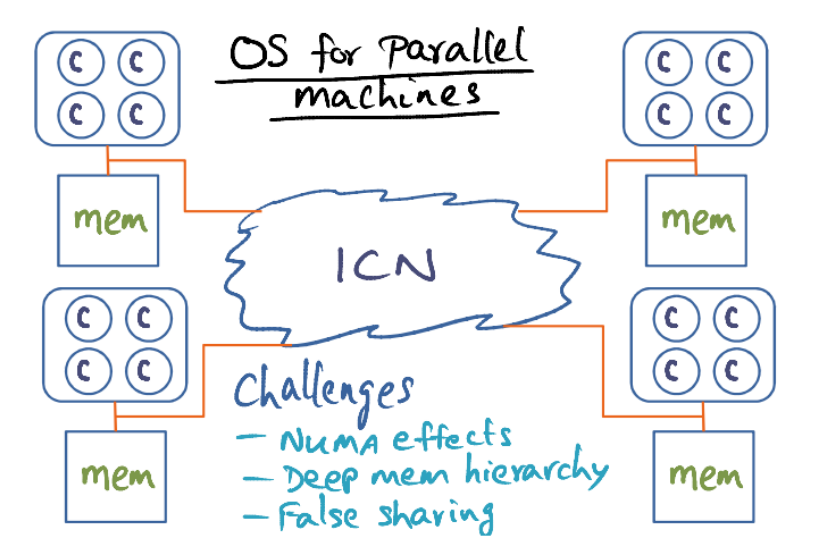 OS for Parallel
machines
C C
C C
mem
C C
C C
mem
ICN
C C
C C
mem
C C
C C
mem
Challenges
- NUMA effects
- Deep mem hierarchy
- False sharing